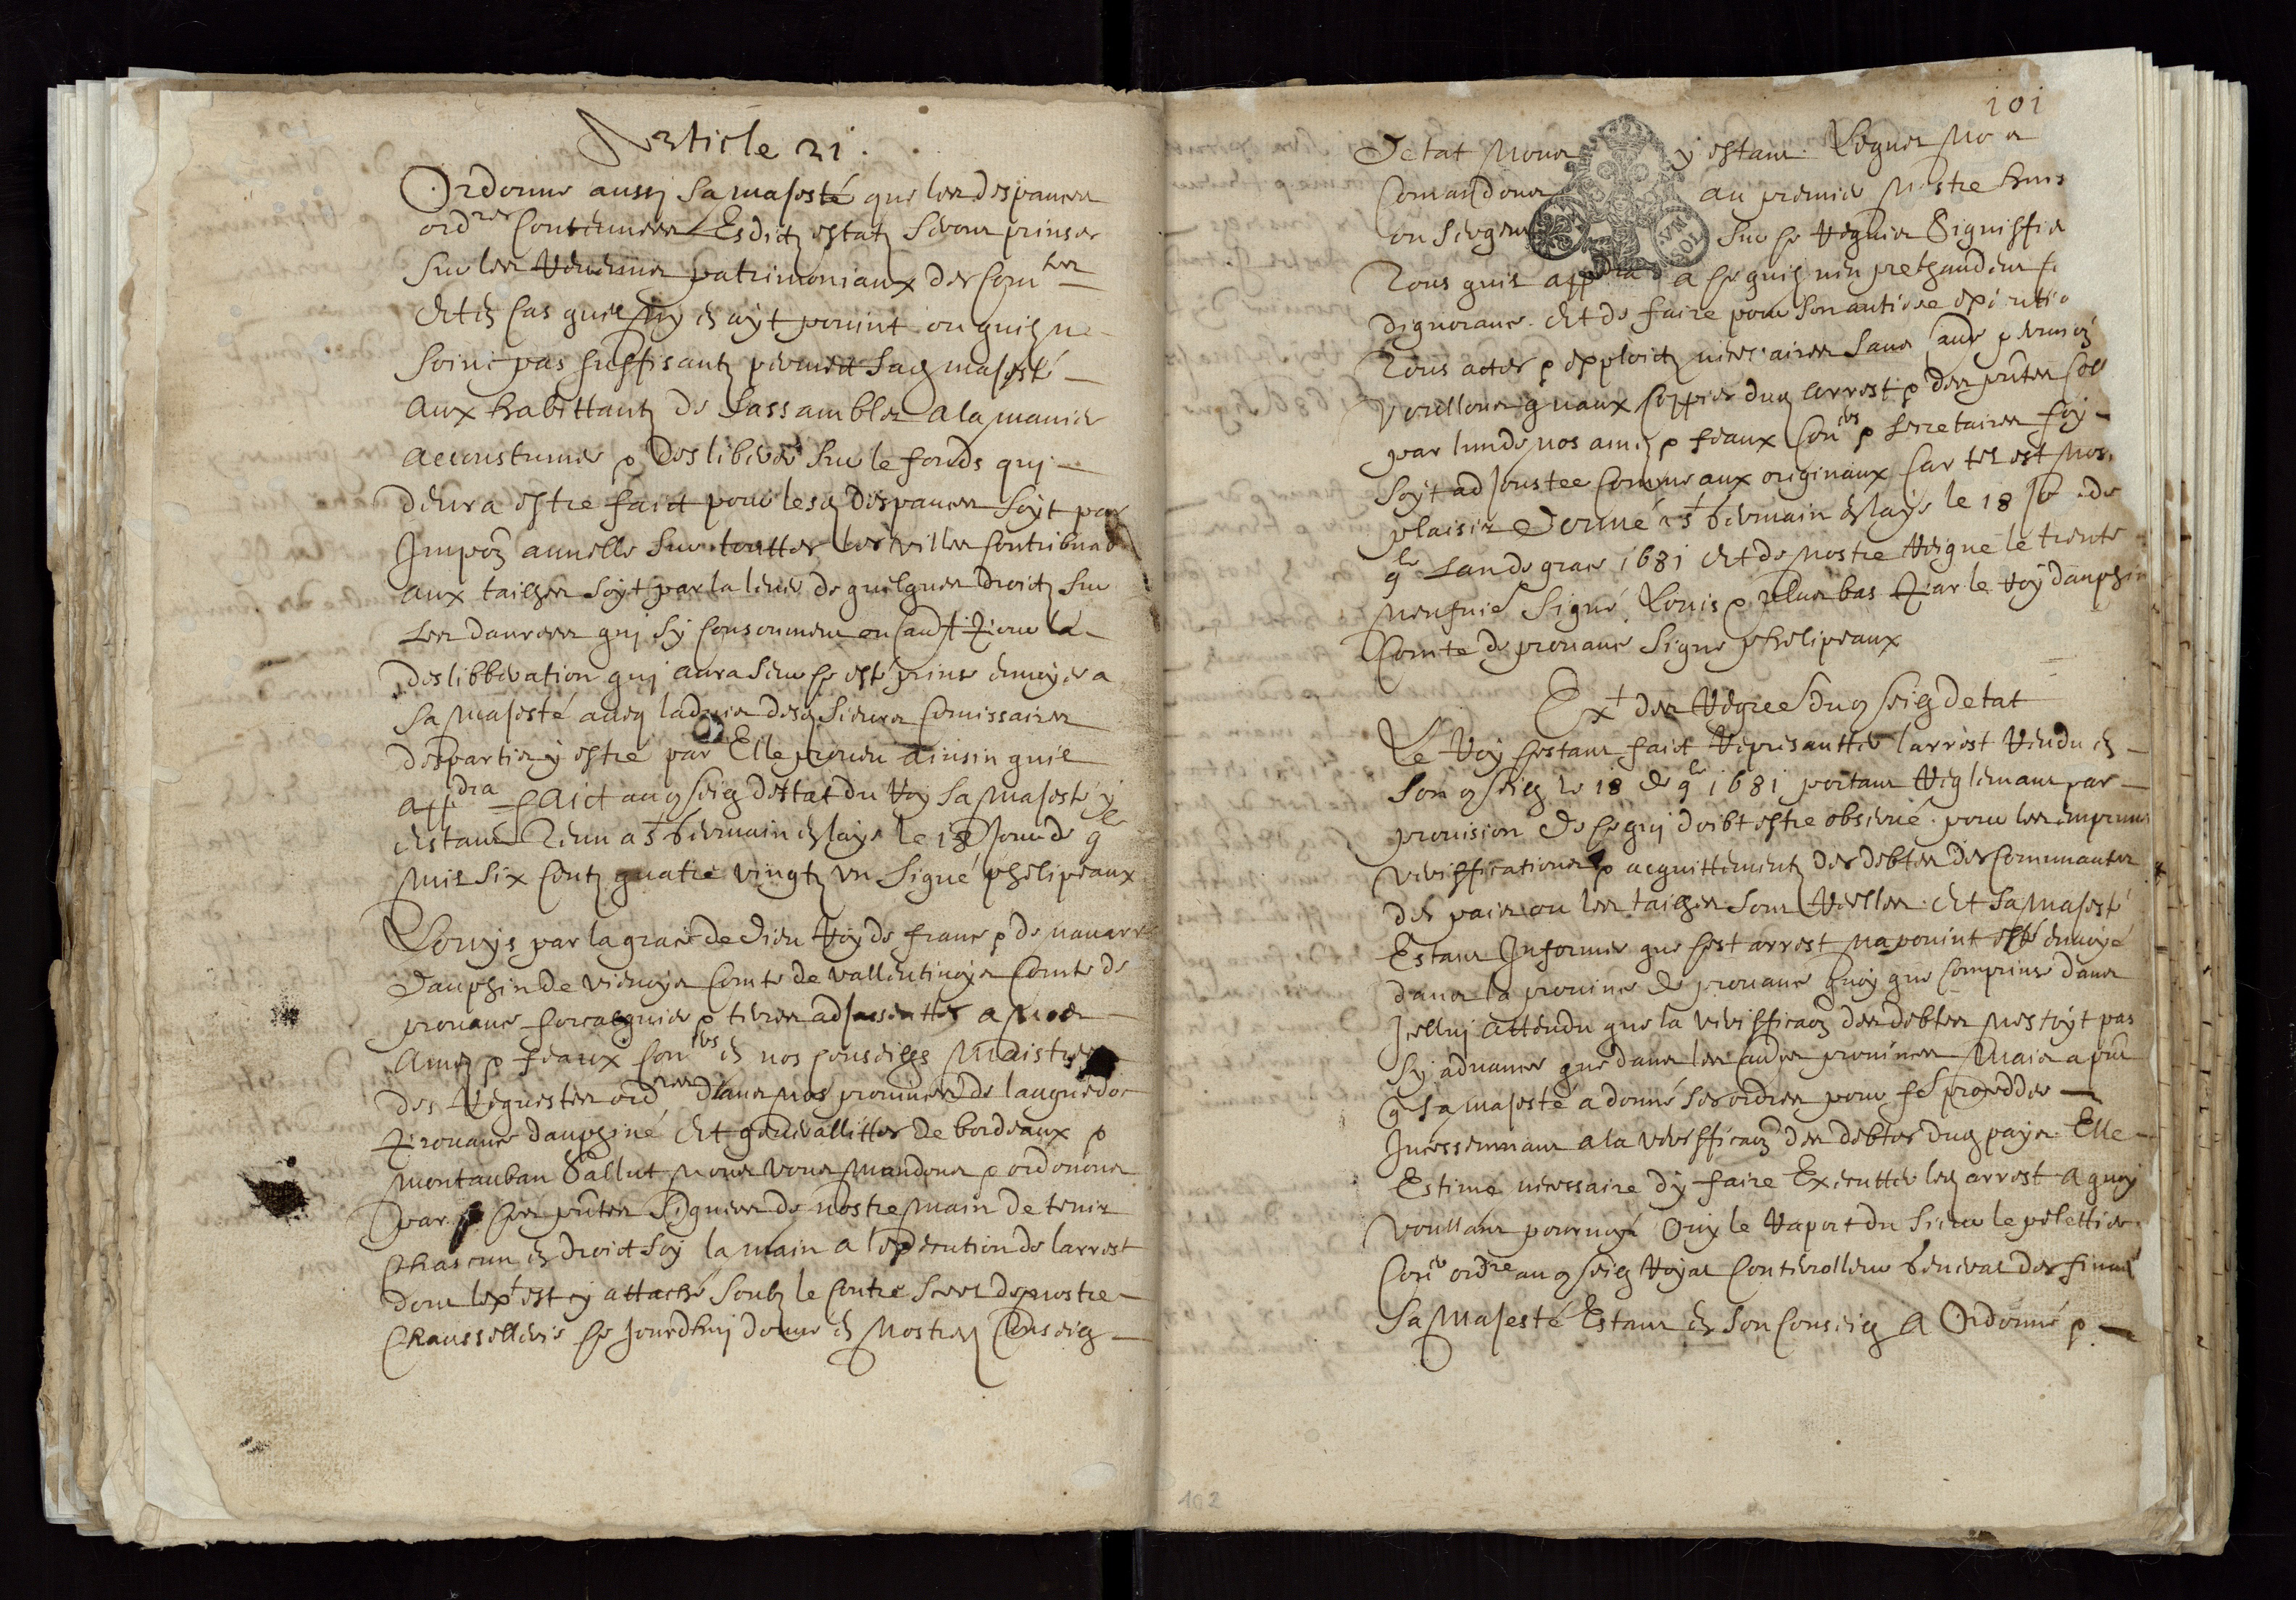 Article 21.
Ordonne aussy sa majesté que les despances
ord.res contenues Esdictz estatz seront prinses
sur les revenus patrimoniaux des com.tes
et en cas quil ny en ayt pouint ou quilz ne
soint pas suffisantz permet sad majesté
aux habittantz de sassambler a la maniere
accoustumee & deslibérer sur le fonds qui
devra estre faict pour lesd despances soyt par
Impo.on annelle sur touttes les villes contribuab
aux tailhes soyt par la levée de quelques droictz sur
les danrées qui sy consomment
deslibberation qui aura sur ce esté prinse envoyée a
sa majesté avec ladvis desd sieurs commissaires
despartis y estre par Elle pourveu ainsin quil
app.dra faict au conseilh destat du Roy sa majesté y
estant tenu a St Germain en laye le 18 Jour de 9.bre
mil six centz quatre vingtz un signé phelipeaux
Louys par la grace de dieu Roy de france & de navarre
dauphin de vienoys comte de vallentinoys comte de
provance forcalquier & terres adjassentes a nos
amés & feaux con.ers en nos conseilhs Maistres
des requestes ord.res dans nos provinces de languedoc
provance dauphiné et generallittes de bordeaux &
montauban Sallut nous vous mandons & ordonons
par ces p.ntes signées de nostre main de tenir
chascun en droict soy la main a lexecution de larrest
dont lext est cy attaché soubz le contre scel de nostre
chansellerie ce jourdhuy donné en nostred conseilh
101
detat nous y estant Regner no
comandons au premier nostre huis
ou sergent sur ce requis Signiffier
tous quil app.dra a ce quilz nen prethandent
dignorance et de faire pour son antiere executio
tous actes & exploictz nécésaires sans autre permion
voullons quaux coppies dud arrest & des p.ntes coll
par lun de nos amés & feaux con.ers & secretaires foy
soyt adjoustee comme aux originaux car tel est nos
plaisir donné a St Germain en laye le 18 jo.r de
9.bre lan de grace 1681 et de nostre regne le trente
neufuie signé Louis & plus bas par le roy dauphin
comte de provance signe phelipeaux
Ext des regres du conseilh detat
Le Roy sestant faict representter larrest rendu en
son conseilh le 18 de 9.bre 1681 portant reglemant par
provision de ce qui doibt estre observé pour les emprun
veriffications & acquittementz des debtes des communautes
des pais ou les tailhes sont réelles et sa majesté
Estant Informee que cest arrest na pouint esté envoyé
dans la province de provance quoy que comprinse dans
Icelluj attendu que la veriffica.on des debtes nestoyt pas
sy advancee que dans les autres provinces Mais a p.nt
q sa majesté a donné ses ordres pour fe procedder
Incessemmant a la veriffica.on des debtes dud pays Elle
Estimé necessaire dy faire Executter led arrest a quoy
voullant pourvoir Ouy le raport du sieur le pelettier
Con.er ord.re au conseilh royal controlleur general des finan
sa majesté Estant en son conseilh a Ordonné &
102